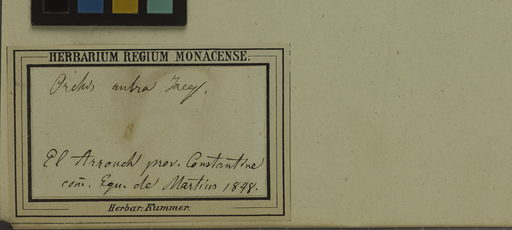 HERBARIUM REGIUM MONACENSE.
Orchis rubra Jacq.
El Arrouch prov. Constantine
com̄. Equ. de Martius 1848.
Herbar. Kummer.